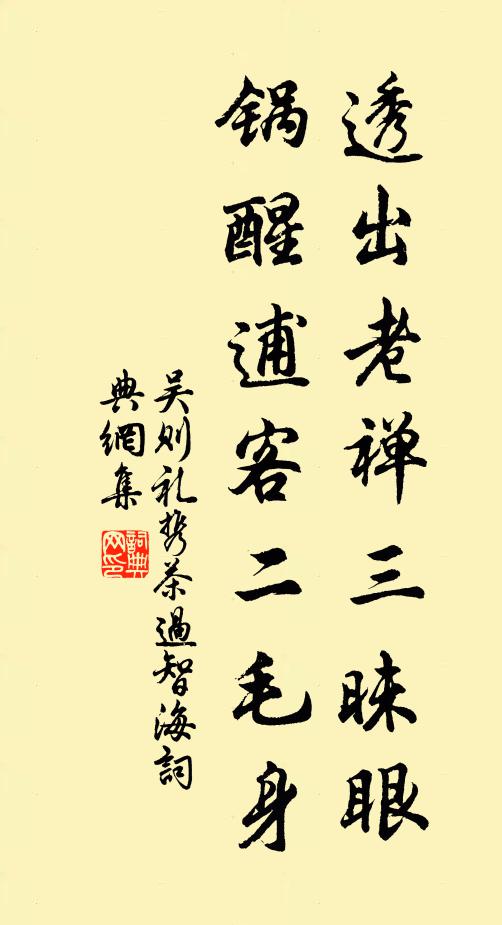 透出老禅三昧眼
锅醒逋客二毛身
吴则礼携茶過智海詞
典網集
詞典网印